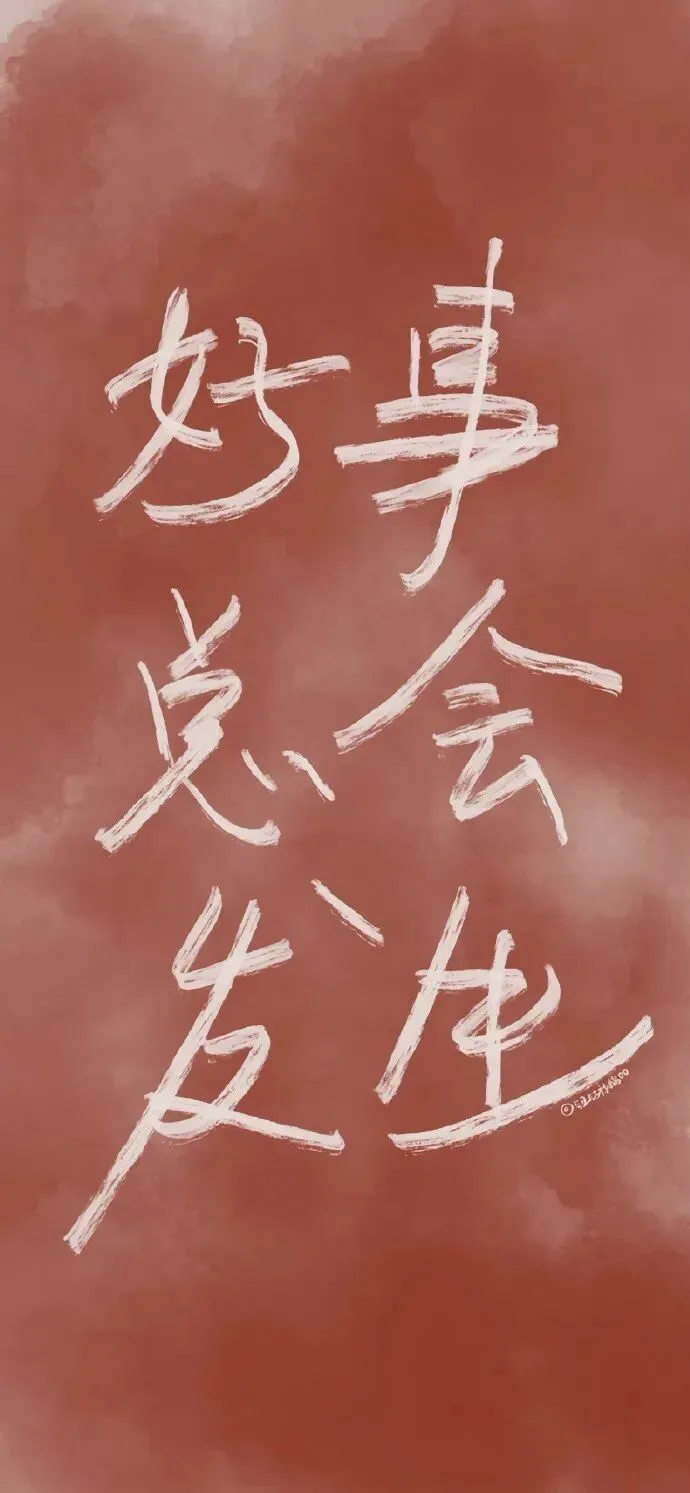 好事
总会
发生